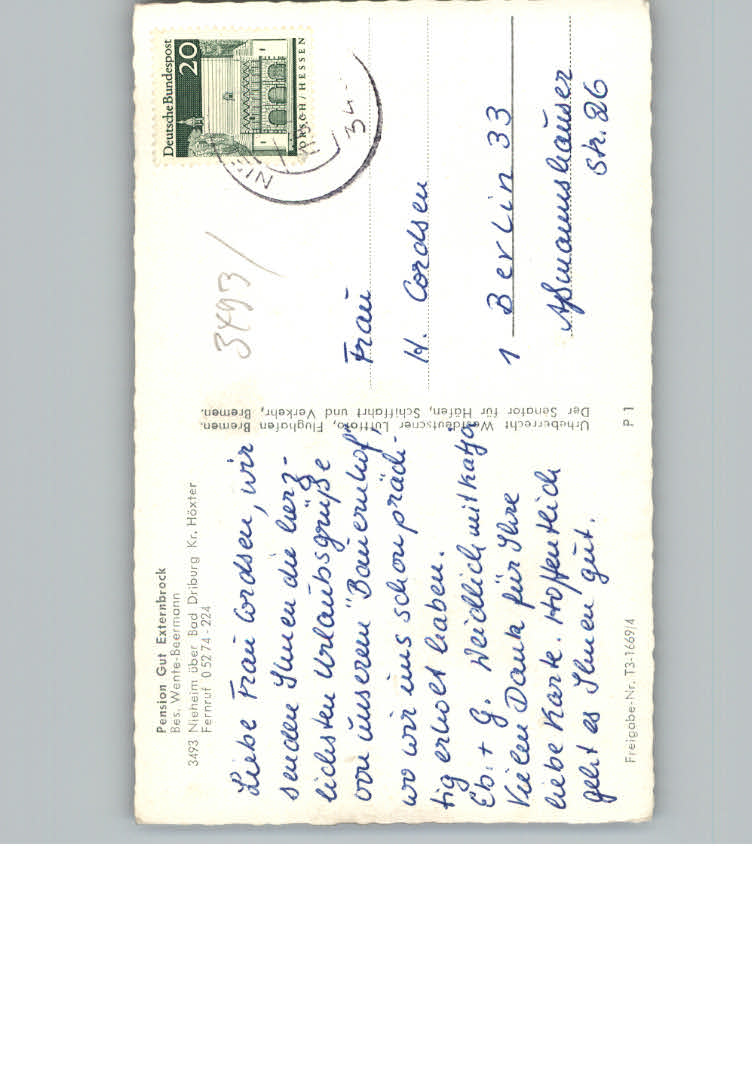 Pension Gut Externbrock
Bes. Wente-Beermann
3493 Nieheim über Bad Driburg Kr. Höxter
Fernruf 0 52 74 - 224
Liebe Frau Cordsen, wir
senden Ihnen die herz-
lichsten Urlaubsgrüße
von unserem "Bauernhof",
wo wir uns schon präch-
tig erholt haben.
Eb. + G. Weidlich mit Katja
Vielen Dank für Ihre
liebe Karte. Hoffentlich
geht es Ihnen gut.
Freigabe-Nr. T3-1669/4
Urheberrecht Westdeutscher Luftfoto, Flughafen Bremen.
Der Senator für Häfen, Schiffahrt und Verkehr, Bremen.
P 1
Deutsche Bundespost
20
LORSCH / HESSEN
NIE
34
3493
Frau
H. Cordsen
1 Berlin 33
Aßmannshäuser
Str. 26